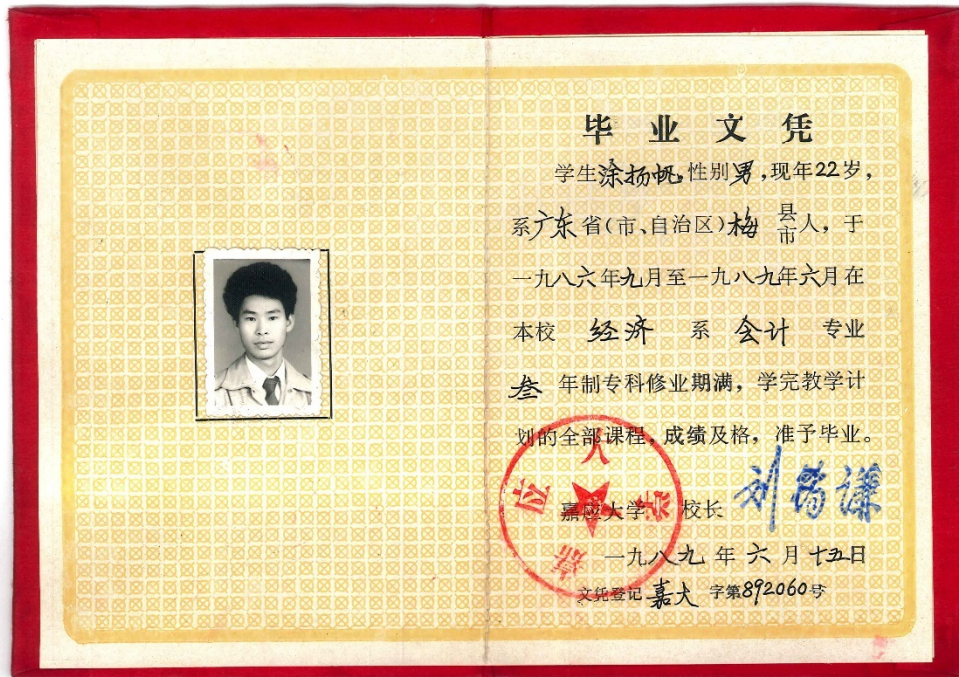 毕业文凭
学生涂扬帆,性别男,现年22岁,
系广东省(市、自治区)梅县市人,于
一九八六年九月至一九八九年六月在
本校 经济 系 会计 专业
叁 年制专科修业期满,学完教学计
划的全部课程,成绩及格,准予毕业。
嘉应大学 校长 刘
一九八九年六月十五日
文凭登记 嘉大 字第892060号
嘉应大学